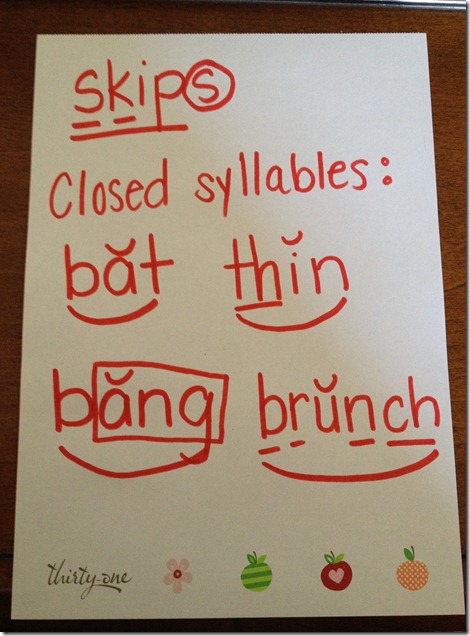 skips
Closed syllables:
băt thĭn
băng brŭnch
thirty-one